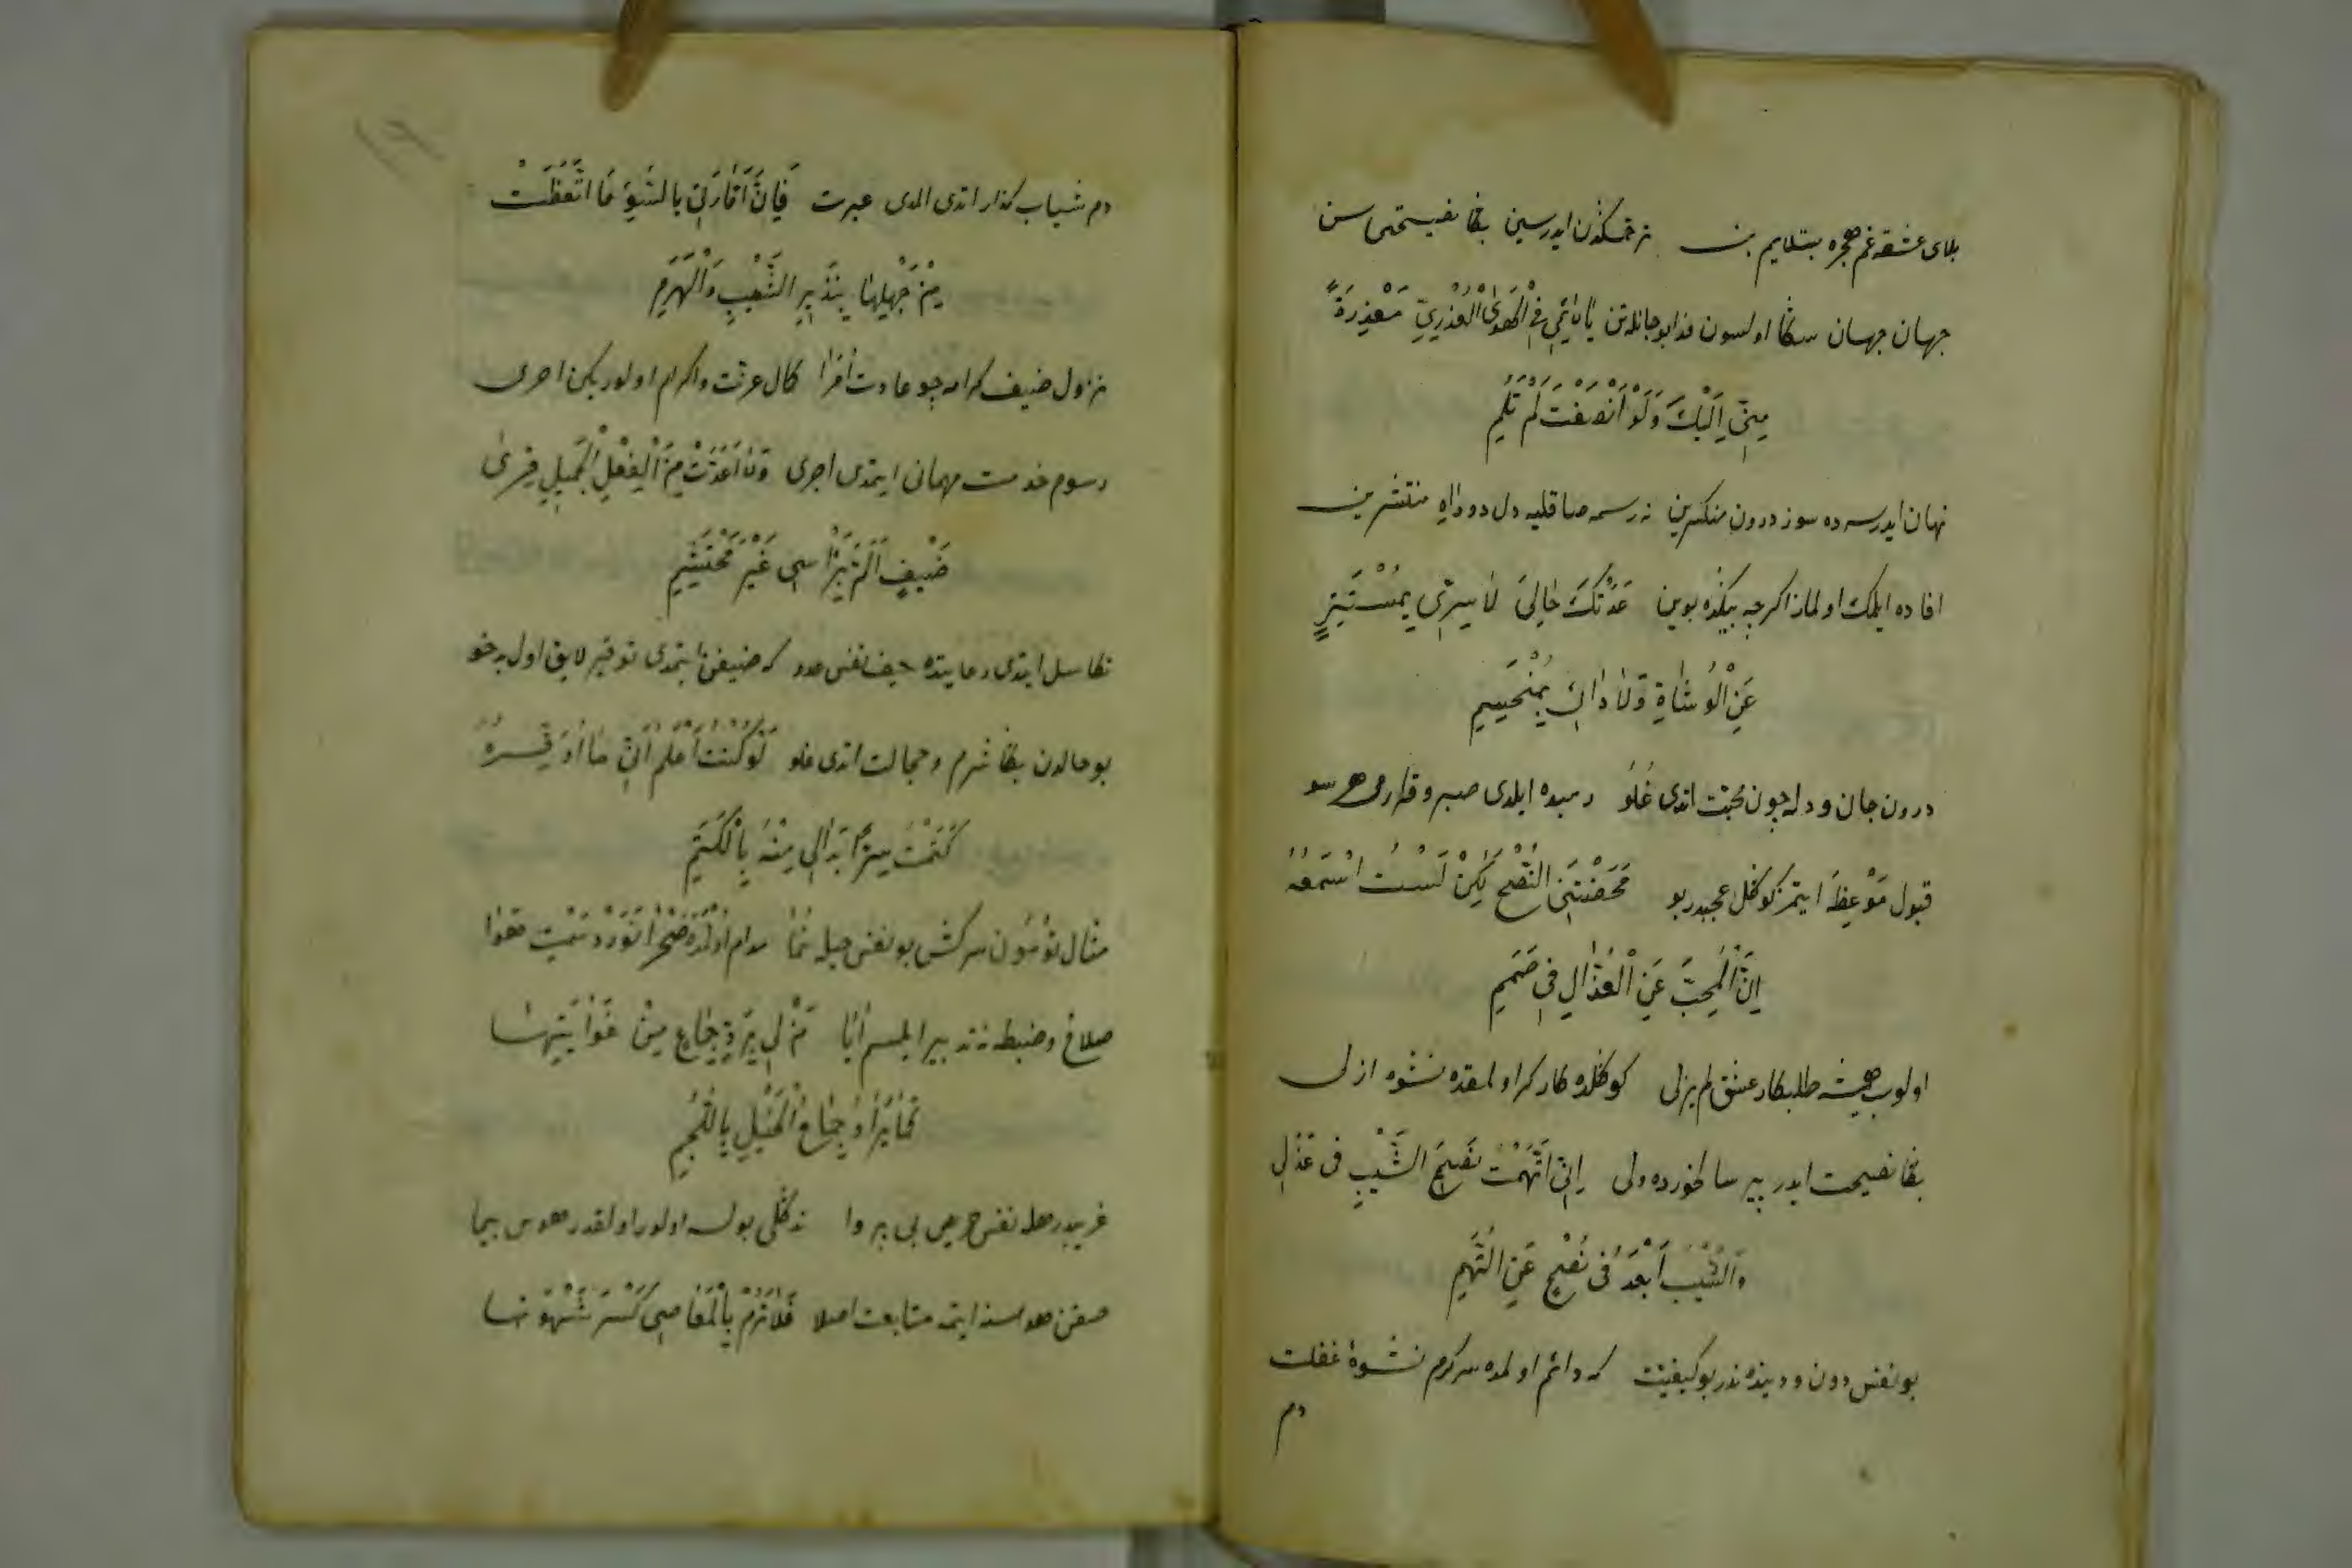 بلای عشقه غم هجره مبتلایم بن نه حکمتدن ایدرسین بڭا نصیحتی سن
جهان جهان سڭا اولسون فدا بو جانله تن یَا لَائِمِی فِی الْهَوَی الْعُذْرِیِّ مَعْذِرَةً
مِنِّی اِلَیْكَ وَلَوْ اَنْصَفْتَ لَمْ تَلُمِ
نهان ایدرسه ده سوز درون منکسرین نه رسمه صاقلیه دل دود اه منتشرین
افاده ایلمك اولماز اکرچه بیکده بوین عَدَتْكَ حَالِیَ لَا سِرِّی بِمُسْتَتِرٍ
عَنِ الْوُشَاةِ وَلَا دَائِی بِمُنْحَسِمِ
درون جان و دله چون محبت اتدی غُلُوّ رمیده ایلدی صبر و قراری هر سو
قبول مَوْعِظَه ایتمز کوڭل عجبدر بو مَحَضْتَنِی النُّصْحَ لٰکِنْ لَسْتُ اَسْمَعُهُ
اِنَّ الْمُحِبَّ عَنِ الْعُذَّالِ فِی صَمَمِ
اولوب همیشه طلبکار عشق لم یزلی کوڭلده کارکر اولمقده نشوه ازلی
بڭا نصیحت ایدر پیر سالخورده ولی اِنِّی اتَّهَمْتُ نَصِیحَ الشَّیْبِ فی عَذَلِی
وَالشَّیْبُ اَبْعَدُ فی نُصْحٍ عَنِ التُّهَمِ
بو نفس دون و دنیده ندر بو کیفیت که دائم اولمده سرکرم نشوۀ غفلت
دم
دم شباب کذار اتدی المدی عبرت فَاِنَّ اَمَّارَتِی بِالسُّوءِ مَا اتَّعَظَتْ
مِنْ جَهْلِهَا بِنَذِیرِ الشَّیْبِ وَالْهَرَمِ
نزول ضیف کرامه چو عادت افرا کمال عزت واکرام اولور یکن احری
رسوم خدمت مهمانی ایتمدی اجری وَلَا اَعَدَّتْ مِنَ الْفِعْلِ الْجَمِیلِ قِرَی
ضَیْفٍ اَلَمَّ بِرَأْسِی غَیْرَ مُحْتَشِمِ
تکاسل ایتدی رعایتده حیف نفس عدو که ضیفن ایتمدی توقیر لایق اول بدخو
بو حالدن بڭا شرم و خجالت اتدی غلو لَوْ کُنْتُ اَعْلَمُ اَنِّی مَا اُوَقِّرُهُ
کَتَمْتُ سِرًّا بَدَا لِی مِنْهُ بِالْکَتَمِ
مثال توسون سرکش بو نفس حیله نما مدام اولمده صحرا نورد سمت هوا
صلاح و ضبطه نه تدبیر ایلسم ایا مَنْ لِی بِرَدِّ جِمَاحٍ مِنْ غَوَایَتِهَا
کَمَا یُرَدُّ جِمَاحُ الْخَیْلِ بِاللُّجُمِ
غریبدر هله نفس حریص بی پروا نه دڭلی بولسه اولور اولقدر هوس پیما
صقن هواسنه ایتمه متابعت اصلا فَلَا تَرُمْ بِالْمَعَاصِی کَسْرَ شَهْوَتِهَا